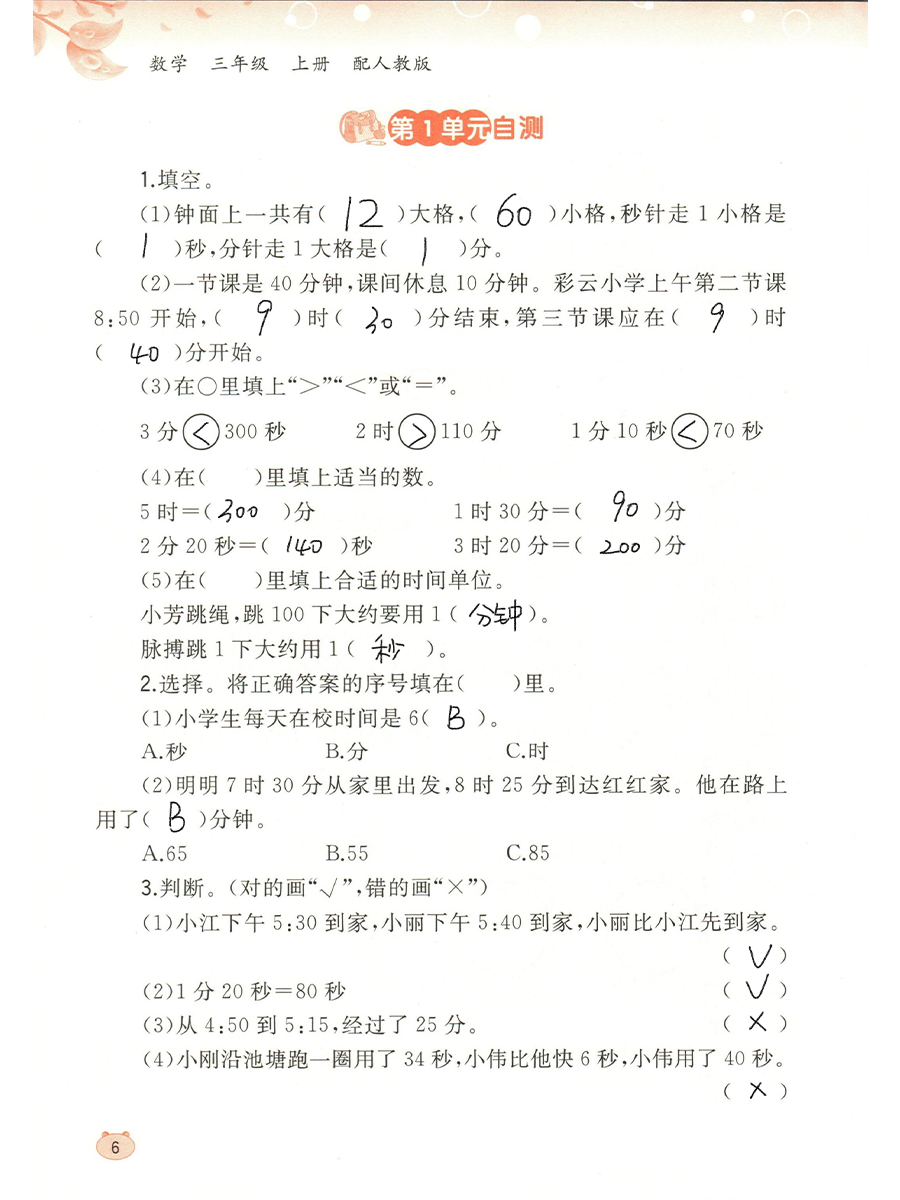 数学 三年级 上册 配人教版
第1单元自测
1.填空。
(1)钟面上一共有( 12 )大格,( 60 )小格,秒针走1小格是
( 1 )秒,分针走1大格是( 1 )分。
(2)一节课是40分钟,课间休息10分钟。彩云小学上午第二节课
8:50开始,( 9 )时( 30 )分结束,第三节课应在( 9 )时
( 40 )分开始。
(3)在○里填上“>”“<”或“=”。
3分<300秒 2时>110分 1分10秒<70秒
(4)在( )里填上适当的数。
5时=(300)分 1时30分=( 90 )分
2分20秒=( 140 )秒 3时20分=( 200 )分
(5)在( )里填上合适的时间单位。
小芳跳绳,跳100下大约要用1( 分钟 )。
脉搏跳1下大约用1( 秒 )。
2.选择。将正确答案的序号填在( )里。
(1)小学生每天在校时间是6( B )。
A.秒 B.分 C.时
(2)明明7时30分从家里出发,8时25分到达红红家。他在路上
用了( B )分钟。
A.65 B.55 C.85
3.判断。(对的画“√”,错的画“×”)
(1)小江下午5:30到家,小丽下午5:40到家,小丽比小江先到家。
( √ )
(2)1分20秒=80秒 ( √ )
(3)从4:50到5:15,经过了25分。 ( × )
(4)小刚沿池塘跑一圈用了34秒,小伟比他快6秒,小伟用了40秒。
( × )
6